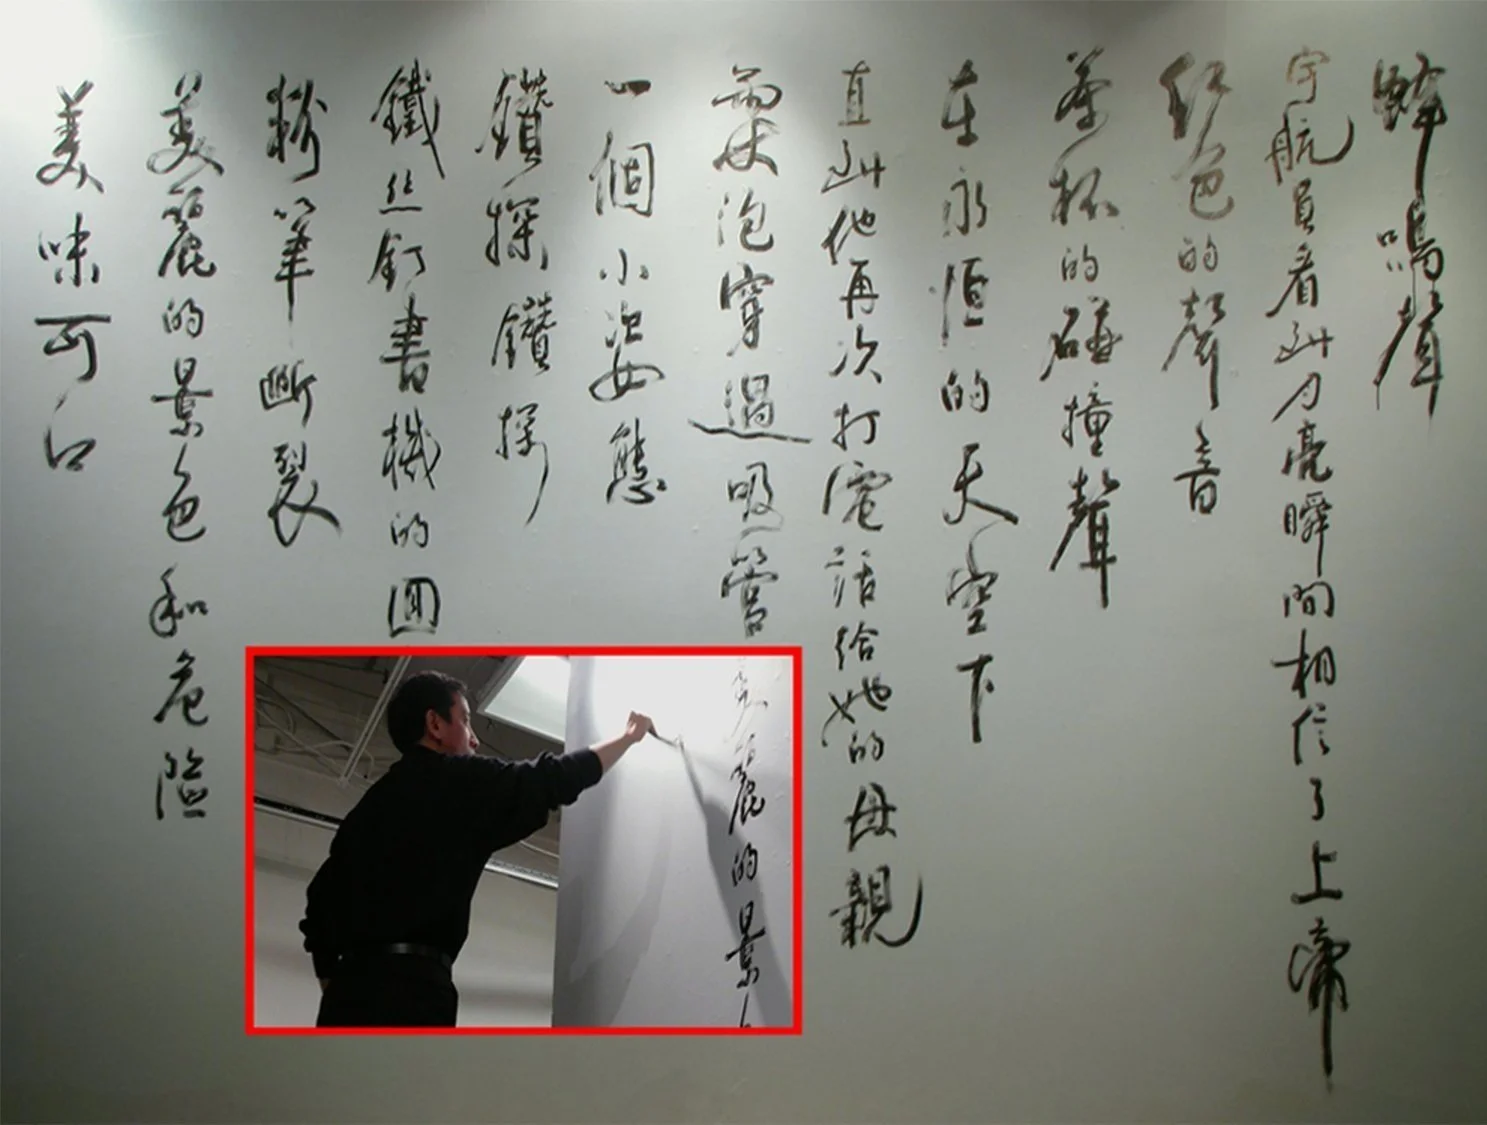 蟀鳴聲
宇航員看到月亮瞬間相信了上帝
紅色的聲音
茶杯的碰撞聲
在永恒的天空下
直到他再次打電話給她的母親
泡穿過吸管
一個小姿態
鑽探鑽探
鐵丝釘書機的圓
粉筆斷裂
美麗的景色和危險
美味可口
美麗的景